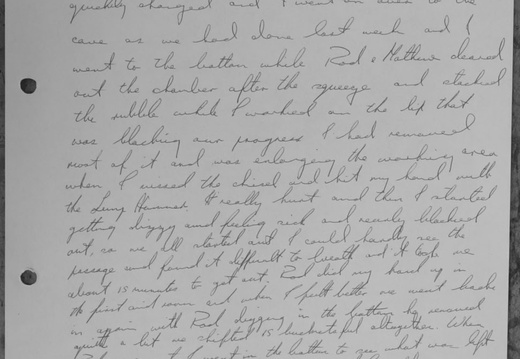 quickly changed and I went on over to the
cave as we had done last week and I
went to the bottom while Rod & Matthew cleared
out the chamber after the squeeze and stacked
the rubble while I worked on the lip that
was blocking our progress I had removed
most of it and was enlarging the working area
when I missed the chisel and hit my hand with
the Lump Hammer. It really hurt and then I started
getting dizzy and feeling sick and nearly blacked
out, so we all started out I could hardly see the
passage and found it difficult to breath and it took me
about 15 minutes to get out. Rod did my hand up in
the first aid room and when I felt better we went back
in again with Rod digging in the bottom he removed
quite a bit we shifted 15 bucketsful altogether. When
I went in the bottom to see what was left